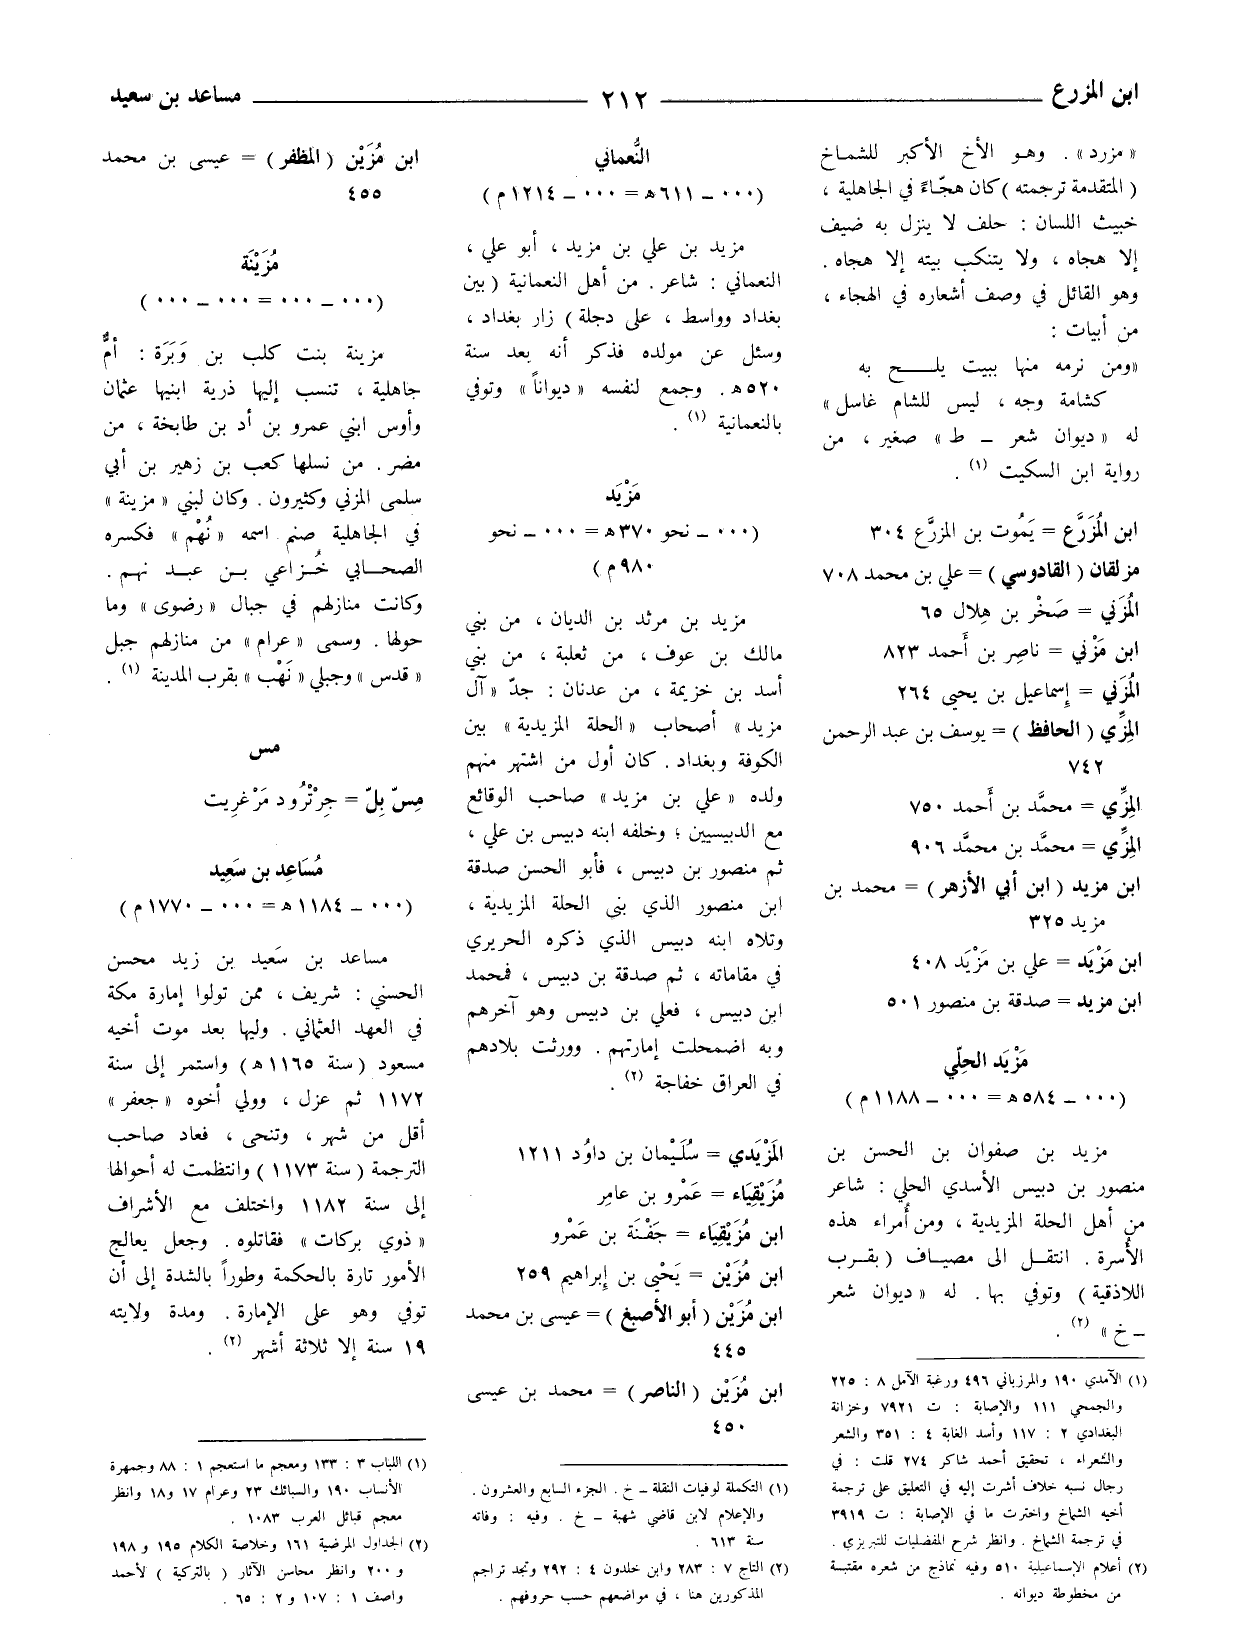 ابن المزرع ــــ ٢١٢ ــــ مساعد بن سعيد
« مزرد » . وهو الأخ الأكبر للشماخ
( المتقدمة ترجمته ) كان هجّاءً في الجاهلية ،
خبيث اللسان : حلف لا ينزل به ضيف
إلا هجاه ، ولا يتنكب بيته إلا هجاه .
وهو القائل في وصف أشعاره في الهجاء ،
من أبيات :
«ومن نرمه منها ببيت يلـــح به
كشامة وجه ، ليس للشام غاسل»
له « ديوان شعر ـ ط » صغير ، من
رواية ابن السكيت (١) .
ابن المُزَرَّع = يَمُوت بن المزرَّع ٣٠٤
مزلقان ( القادوسي ) = علي بن محمد ٧٠٨
المُزَني = صَخْر بن هِلال ٦٥
ابن مَزْني = ناصِر بن أَحمد ٨٢٣
المُزَني = إِسماعيل بن يحيى ٢٦٤
المِزِّي ( الحافظ ) = يوسف بن عبد الرحمن
٧٤٢
المِزِّي = محمَّد بن أَحمد ٧٥٠
المِزِّي = محمَّد بن محمَّد ٩٠٦
ابن مزيد ( ابن أبي الأزهر ) = محمد بن
مزيد ٣٢٥
ابن مَزْيَد = علي بن مَزْيَد ٤٠٨
ابن مزيد = صدقة بن منصور ٥٠١
مَزْيَد الحِلّي
(٠٠٠ ـ ٥٨٤ه = ٠٠٠ ـ ١١٨٨م )
مزيد بن صفوان بن الحسن بن
منصور بن دبيس الأسدي الحلي : شاعر
من أهل الحلة المزيدية ، ومن أُمراء هذه
الأُسرة . انتقـل الى مصيـاف ( بقـرب
اللاذقية ) وتوفي بها . له « ديوان شعر
ـ خ » (٢) .
(١) الآمدي ١٩٠ والمرزباني ٤٩٦ ورغبة الآمل ٨ : ٢٢٥
والجمحي ١١١ والإصابة : ت ٧٩٢١ وخزانة
البغدادي ٢ : ١١٧ وأسد الغابة ٤ : ٣٥١ والشعر
والشعراء ، تحقيق أحمد شاكر ٢٧٤ قلت : في
رجال نسبه خلاف أشرت إليه في التعليق على ترجمة
أخيه الشماخ واخترت ما في الإصابة : ت ٣٩١٩
في ترجمة الشماخ . وانظر شرح المفضليات للتبريزي .
(٢) أعلام الإسماعيلية ٥١٠ وفيه نماذج من شعره مقتبسة
من مخطوطة ديوانه .
النُّعماني
(٠٠٠ ـ ٦١١ه = ٠٠٠ ـ ١٢١٤م )
مزيد بن علي بن مزيد ، أبو علي ،
النعماني : شاعر . من أهل النعمانية ( بين
بغداد وواسط ، على دجلة ) زار بغداد ،
وسئل عن مولده فذكر أنه بعد سنة
٥٢٠ه . وجمع لنفسه « ديواناً » وتوفي
بالنعمانية (١) .
مَزْيَد
(٠٠٠ ـ نحو ٣٧٠ه = ٠٠٠ ـ نحو
٩٨٠م )
مزيد بن مرثد بن الديان ، من بني
مالك بن عوف ، من ثعلبة ، من بني
أسد بن خزيمة ، من عدنان : جدّ « آل
مزيد » أصحاب « الحلة المزيدية » بين
الكوفة وبغداد . كان أول من اشتهر منهم
ولده « علي بن مزيد » صاحب الوقائع
مع الدبيسيين ؛ وخلفه ابنه دبيس بن علي ،
ثم منصور بن دبيس ، فأبو الحسن صدقة
ابن منصور الذي بنى الحلة المزيدية ،
وتلاه ابنه دبيس الذي ذكره الحريري
في مقاماته ، ثم صدقة بن دبيس ، فمحمد
ابن دبيس ، فعلي بن دبيس وهو آخرهم
وبه اضمحلت إمارتهم . وورثت بلادهم
في العراق خفاجة (٢) .
المَزْيَدي = سُلَيْمان بن داوُد ١٢١١
مُزَيْقِيَاء = عَمْرو بن عامِر
ابن مُزَيْقِيَاء = جَفْنَة بن عَمْرو
ابن مُزَيْن = يَحْيى بن إبراهيم ٢٥٩
ابن مُزَيْن ( أبو الأصبغ ) = عيسى بن محمد
٤٤٥
ابن مُزَيْن ( الناصر ) = محمد بن عيسى
٤٥٠
(١) التكملة لوفيات النقلة ـ خ . الجزء السابع والعشرون .
والإعلام لابن قاضي شهبة ـ خ . وفيه : وفاته
سنة ٦١٣ .
(٢) التاج ٧ : ٢٨٣ وابن خلدون ٤ : ٢٩٢ وتجد تراجم
المذكورين هنا ، في مواضعهم حسب حروفهم .
ابن مُزَيْن ( المظفر ) = عيسى بن محمد
٤٥٥
مُزَيْنَة
(٠٠٠ ـ ٠٠٠ = ٠٠٠ ـ ٠٠٠ )
مزينة بنت كلب بن وَبَرَة : أمٌّ
جاهلية ، تنسب إليها ذرية ابنيها عثمان
وأوس ابني عمرو بن أد بن طابخة ، من
مضر . من نسلها كعب بن زهير بن أبي
سلمى المزني وكثيرون . وكان لبني « مزينة »
في الجاهلية صنم اسمه « نُهْم » فكسره
الصحـابي خُـزاعي بـن عبـد نهـم .
وكانت منازلهم في جبال « رضوى » وما
حولها . وسمى « عرام » من منازلهم جبل
« قدس » وجبلي « نَهْب » بقرب المدينة (١) .
مس
مِسّ بِلّ = جِرْتْرُود مَرْغريت
مُسَاعِد بن سَعِيد
(٠٠٠ ـ ١١٨٤ه = ٠٠٠ ـ ١٧٧٠م )
مساعد بن سَعيد بن زيد محسن
الحسني : شريف ، ممن تولوا إمارة مكة
في العهد العثماني . وليها بعد موت أخيه
مسعود ( سنة ١١٦٥ه ) واستمر إلى سنة
١١٧٢ ثم عزل ، وولي أخوه « جعفر »
أقل من شهر ، وتنحى ، فعاد صاحب
الترجمة ( سنة ١١٧٣ ) وانتظمت له أحوالها
إلى سنة ١١٨٢ واختلف مع الأشراف
« ذوي بركات » فقاتلوه . وجعل يعالج
الأمور تارة بالحكمة وطوراً بالشدة إلى أن
توفي وهو على الإمارة . ومدة ولايته
١٩ سنة إلا ثلاثة أشهر (٢) .
(١) اللباب ٣ : ١٣٣ ومعجم ما استعجم ١ : ٨٨ وجمهرة
الأنساب ١٩٠ والسبائك ٢٣ وعرام ١٧ و١٨ وانظر
معجم قبائل العرب ١٠٨٣ .
(٢) الجداول المرضية ١٦١ وخلاصة الكلام ١٩٥ و ١٩٨
و ٢٠٠ وانظر محاسن الآثار ( بالتركية ) لأحمد
واصف ١ : ١٠٧ و ٢ : ٦٥ .